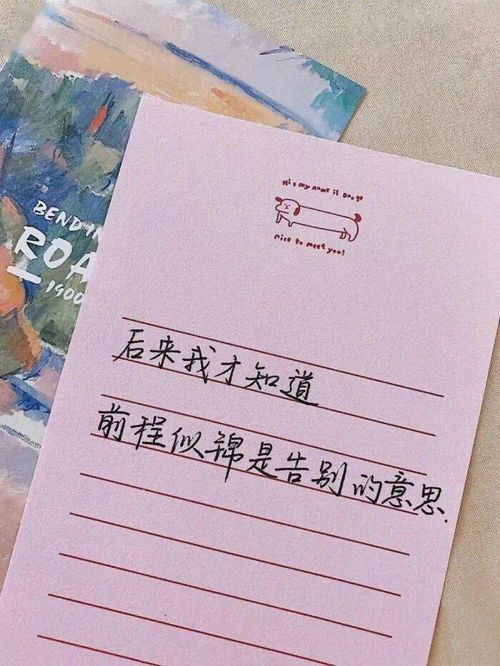 Hi's my name is Doogo
nice to meet you!
BEND IN
ROA
1900
后来我才知道
前程似锦是告别的意思.